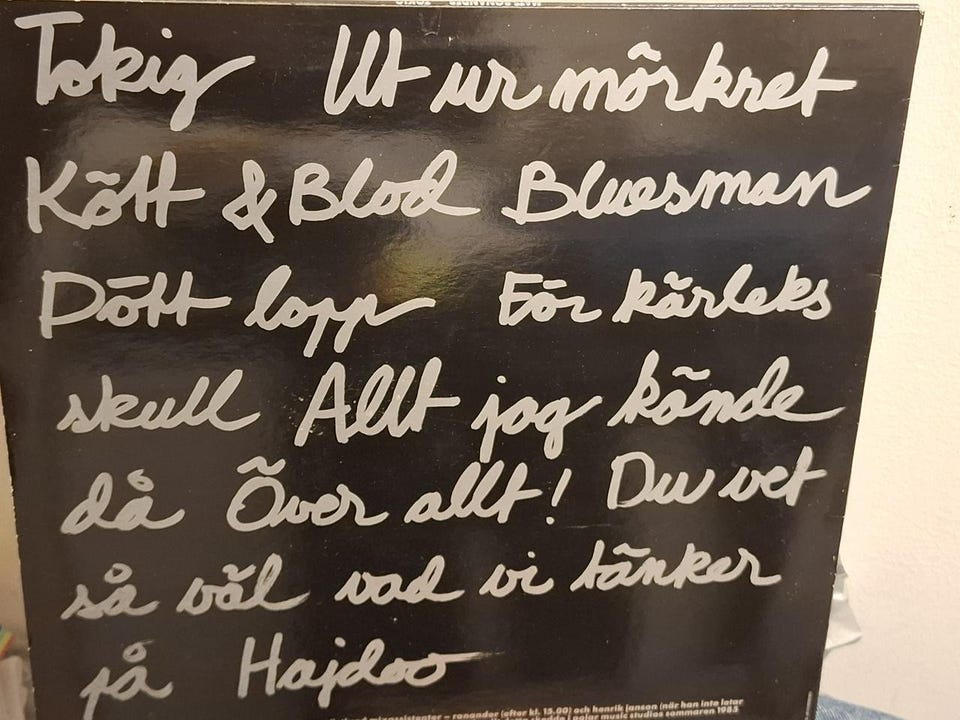 Tokig Ut ur mörkret
Kött & Blod Bluesman
Dött lopp För kärleks
skull Allt jag kände
då Över allt! Du vet
så väl vad vi tänker
på Hajdoo
– ranander (efter kl. 15.00) och henrik janson (när han inte lotar
skedde i polar music studios sommaren 1985